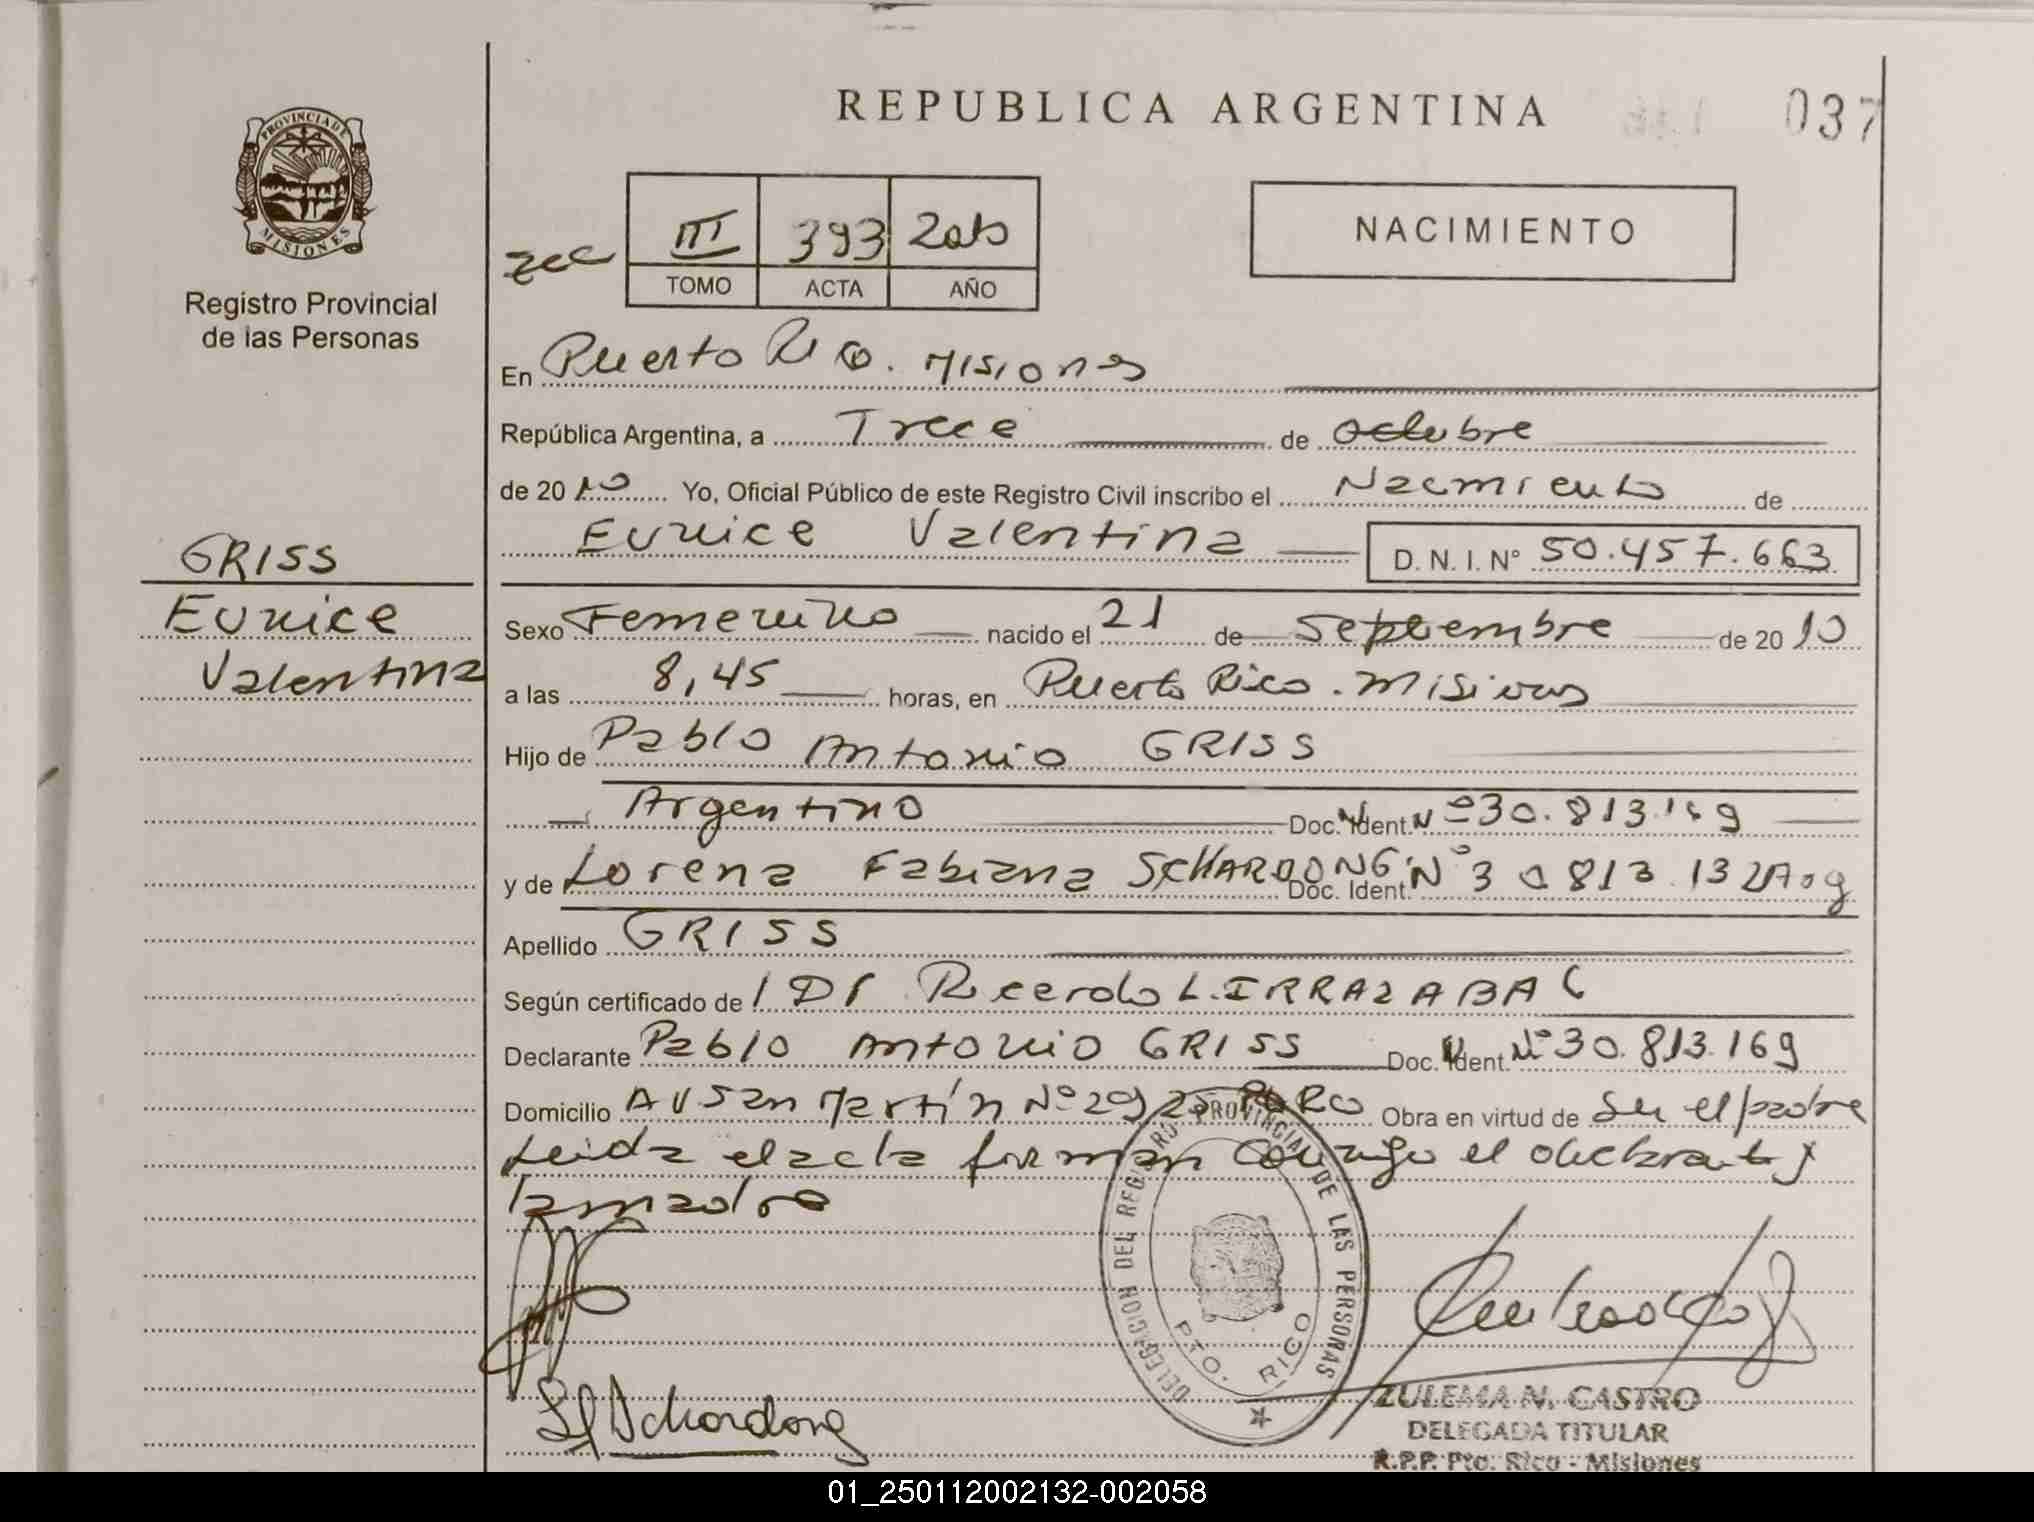 REPUBLICA ARGENTINA
037
PROVINCIA DE
MISIONES
Registro Provincial
de las Personas
III 393 2010
TOMO ACTA AÑO
NACIMIENTO
En Puerto Rico. Misiones
República Argentina, a Trece de octubre
de 2010 Yo, Oficial Público de este Registro Civil inscribo el Nacimiento de
Eunice Valentina D. N. I. Nº 50.457.663
GRISS
Eunice
Valentina
Sexo Femenino nacido el 21 de Septiembre de 2010
a las 8,45 horas, en Puerto Rico. Misiones
Hijo de Pablo Antonio GRISS
Argentino Doc. Ident. Nº 30.813.169
y de Lorena Fabiana SCHARDONG Doc. Ident. Nº 30813.132 Arg
Apellido GRISS
Según certificado de l Dr Ricardo L. IRRAZABAL
Declarante Pablo Antonio GRISS Doc. Ident. Nº 30.813.169
Domicilio AV San Martín Nº 2925 Pto RCO Obra en virtud de Ser el padre
Leida el acta firman conmigo el declarante y
la madre
DELEGACION DEL REGISTRO PROVINCIAL DE LAS PERSONAS
PTO. RICO
Schardong
ZULEMA N. CASTRO
DELEGADA TITULAR
R.P.P. Pto. Rico - Misiones
01_250112002132-002058